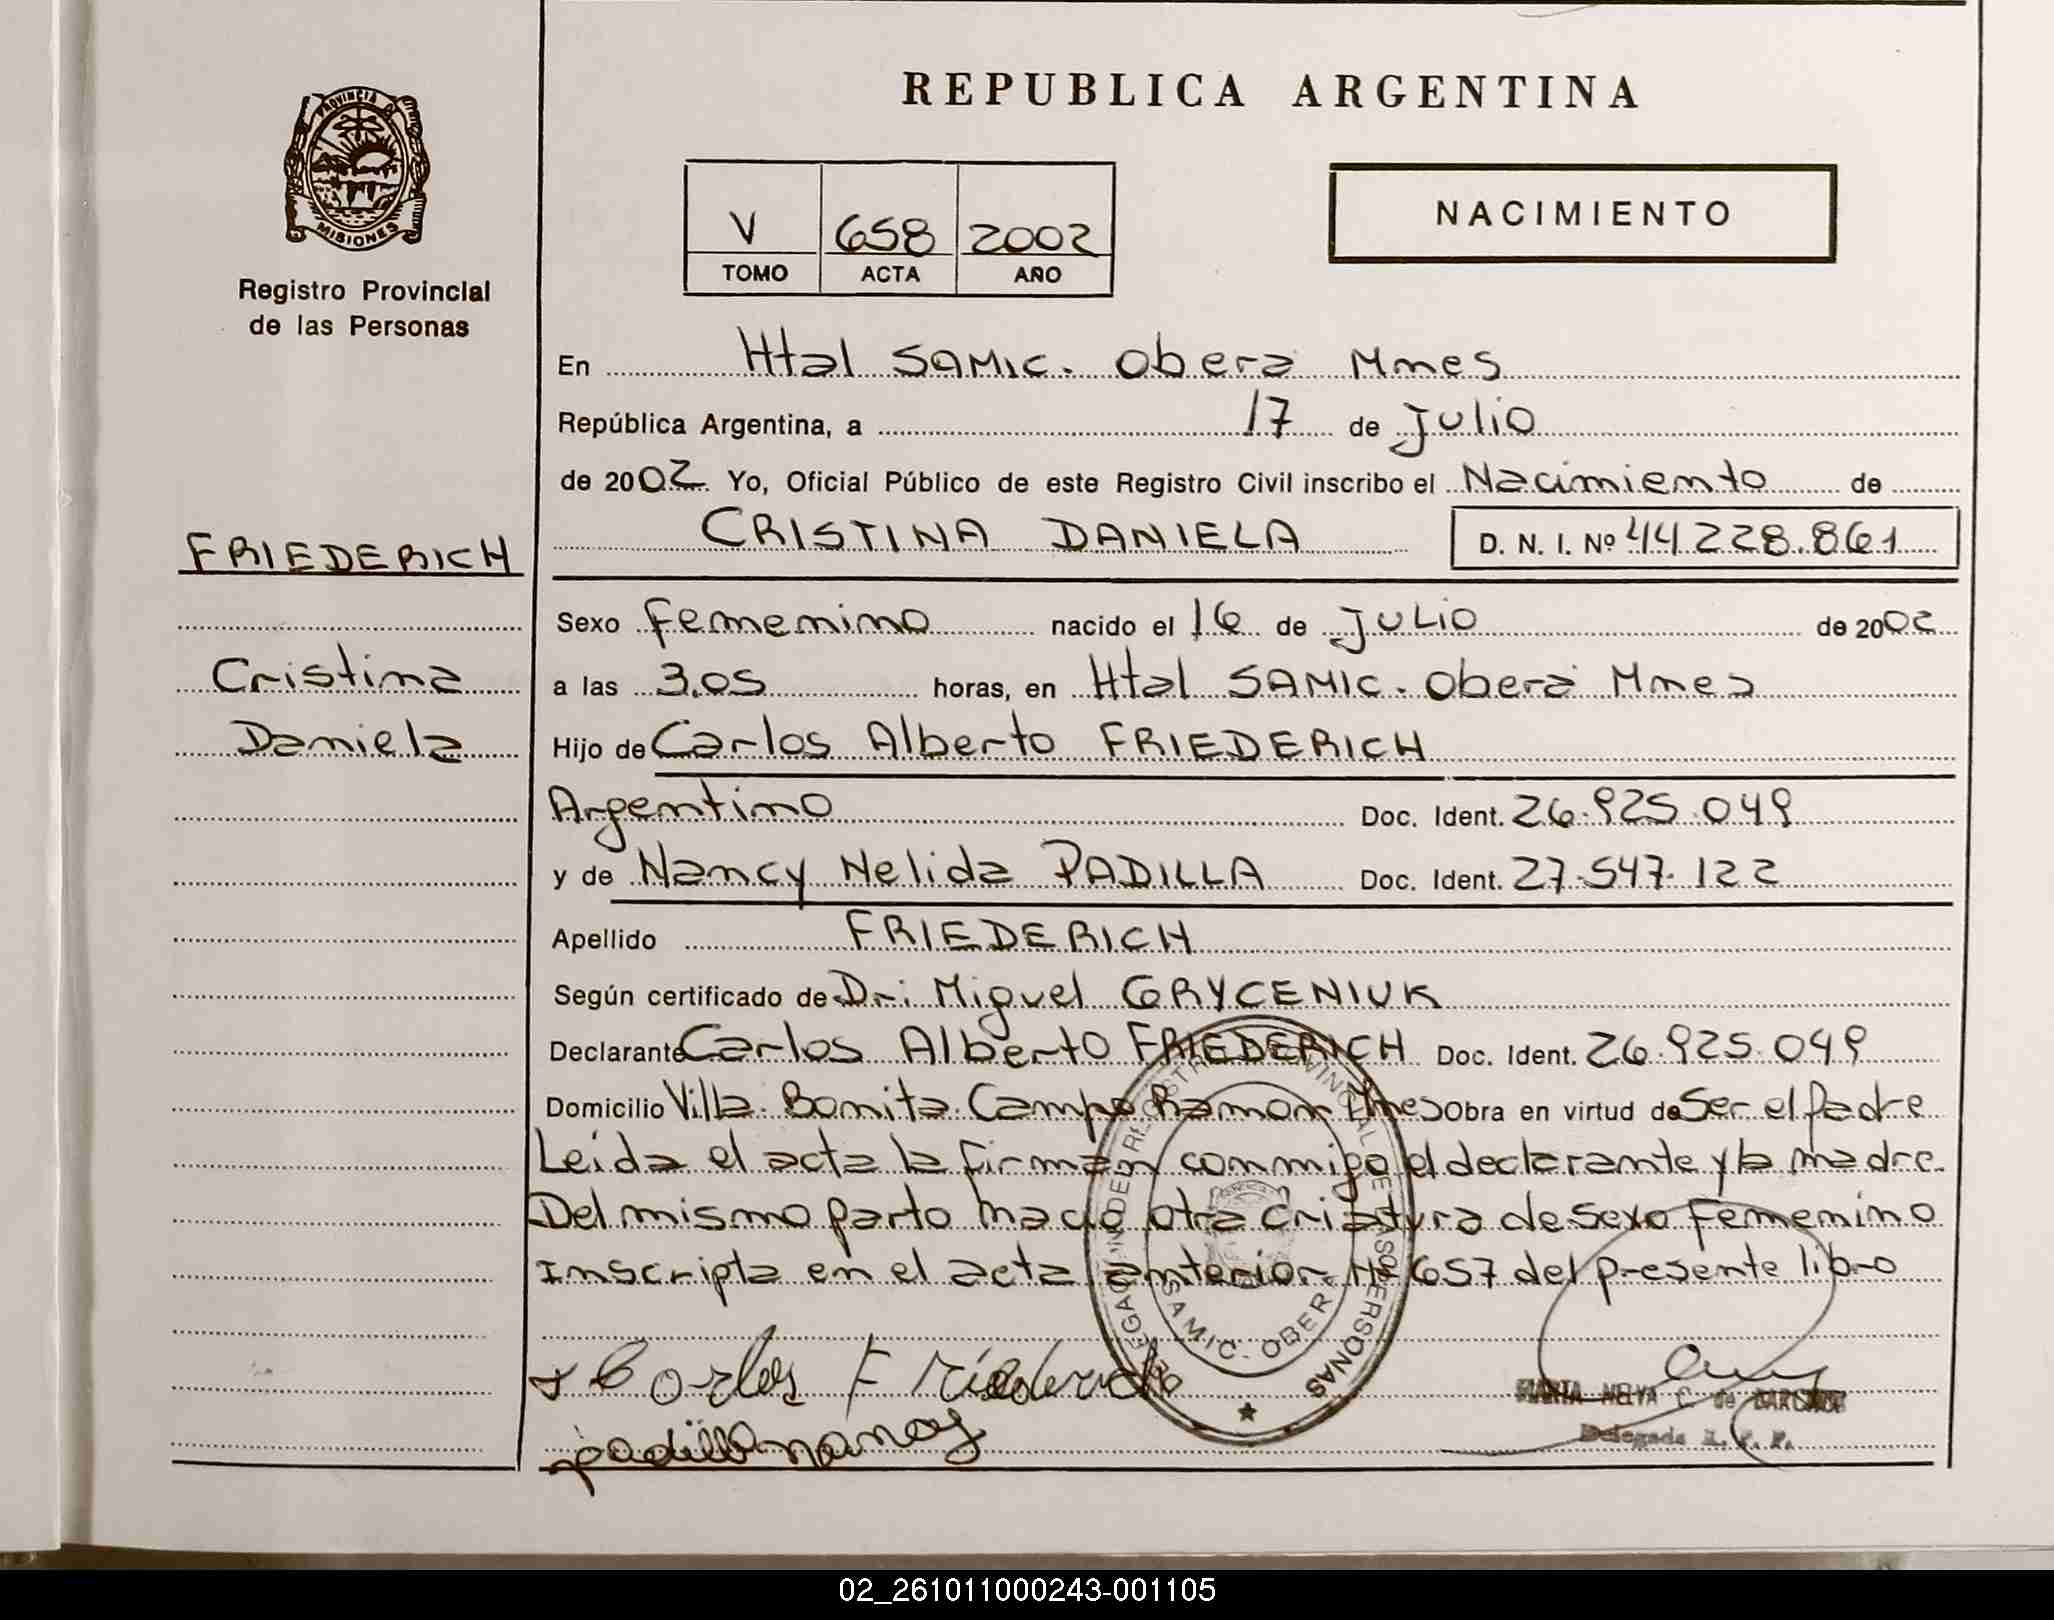 REPUBLICA ARGENTINA
PROVINCIA DE
MISIONES
Registro Provincial
de las Personas
V 658 2002
TOMO ACTA AÑO
NACIMIENTO
En Htal SAMIC. Obera Mnes
República Argentina, a 17 de Julio
de 2002 Yo, Oficial Público de este Registro Civil inscribo el Nacimiento de
CRISTINA DANIELA D. N. I. Nº 44.228.861
FRIEDERICH
Cristina
Daniela
Sexo Femenino nacido el 16 de JULIO de 2002
a las 3.05 horas, en Htal SAMIC. Obera Mnes
Hijo de Carlos Alberto FRIEDERICH
Argentino Doc. Ident. 26.925.049
y de Nancy Nelida PADILLA Doc. Ident. 27.547.122
Apellido FRIEDERICH
Según certificado de Dr: Miguel GRYCENIUK
Declarante Carlos Alberto FRIEDERICH Doc. Ident. 26.925.049
Domicilio Villa Bonita. Campo Ramon Mnes Obra en virtud de Ser el Padre
Leida el acta la firman conmigo el declarante y la madre.
Del mismo parto nacio otra criatura de sexo Femenino
Inscripta en el acta anterior Nº 657 del presente libro
Carlos Friederich
padilla nancy
SAMIC. OBERA
MARTA NELVA C. de
Delegada R. P. P.
02_261011000243-001105